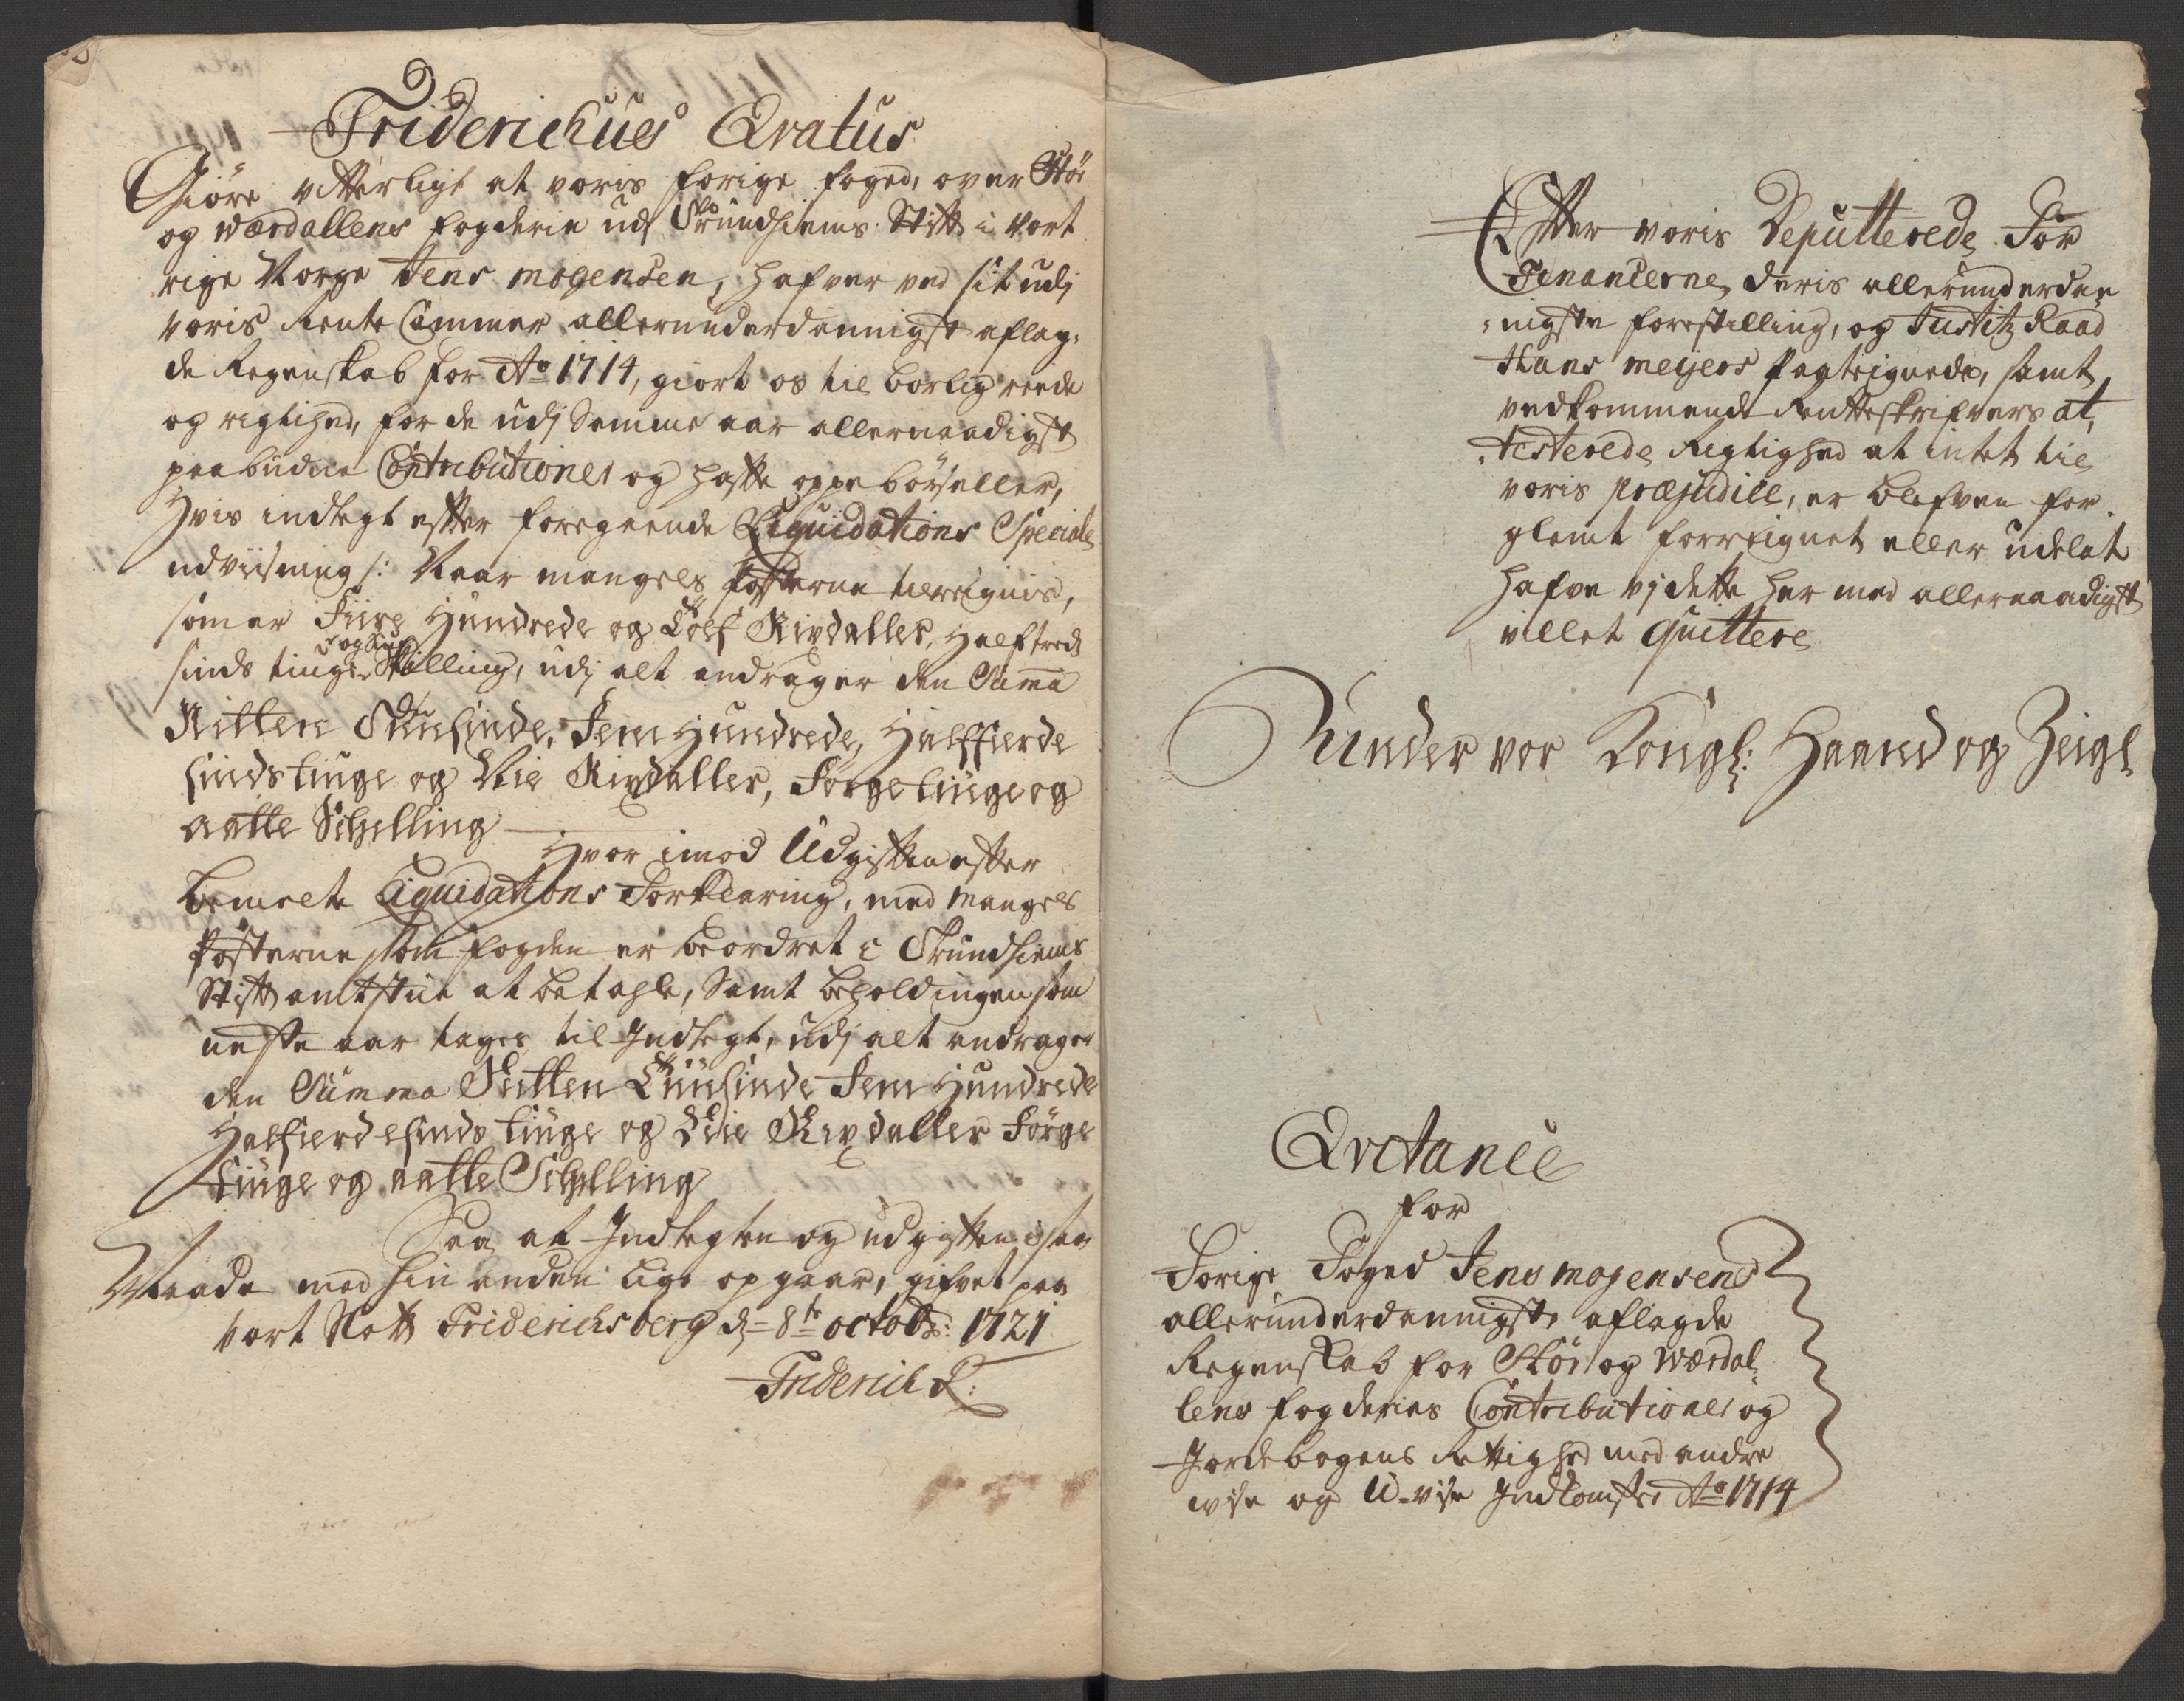 Friderichus Qvatus
Giöre vitterligt at voris forige foged, over Stör
og Værdallens fogderie udj Trundhiems Stift i vort
rige Norge Jens Mogensen, hafver ved sit udj
voris Rente Cammer allerunderdannigst aflag¬
de Regenskab for Ao 1714, giort os til börlig reede
og rigtighed, for de udj Samme aar allernaadigst
paabudne Contributioner og hafte oppebörseller,
Hvis indtegt efter foregaaende Liqvidations Speciale
udviisning /: Naar mangels Posterne tilreignis,
som er Fiire Hundrede og Tolf Rixdaller, Halftreds
sinds tiuge og tiuf Skilling, udj alt andrager den Summa
Nitten Tusinde, Fem Hundrede, Halffierde
sinds tiuge og Nie Rixdaller, Förgetiuge og
aatte Schilling
Hvor imod Udgiften efter
bemelte Liqvidations Forklaring, med Mangels
Posterne som fogden er beordret i Trundhiems
Stift amtstue at betahle, Samt beholdingen som
neste aar tages til Indtegt, udj alt andrager
den Summa Nitten Tuusinde Fem Hundrede
Halfierdesinds tiuge og Nie Rixdaller Förge
tiuge og aatte Schilling
Saa at Indtegten og udgiften i saa
Maade med hin anden lige opgaar, gifvet paa
vort Slott Friderichsberg d= 8te octobr: 1721
Friderich R:
Efter voris Deputterede For
Financerne, deris allerunderdan
nigste forestilling, og Justitz Raad
Hans Meyers Pagteignede, samt
vedkommende Rentteskrifvers at¬
testerede Rigtighed at intet til
voris præjudice, er blefven for¬
glemt forreignet eller udelat
hafve vj dette her med allernaadigst
villet qvittere
Under vor Kongl: Haand og Zeigl
Qvitance
for
Forige Foged Jens Mogensens
allerunderdannigste aflagde
Regenskab for Stör og Værdal¬
lens fogderies Contributioner og
Jordebogens Rettighed med andre
vise og U-vise Indkomster Ao 1714